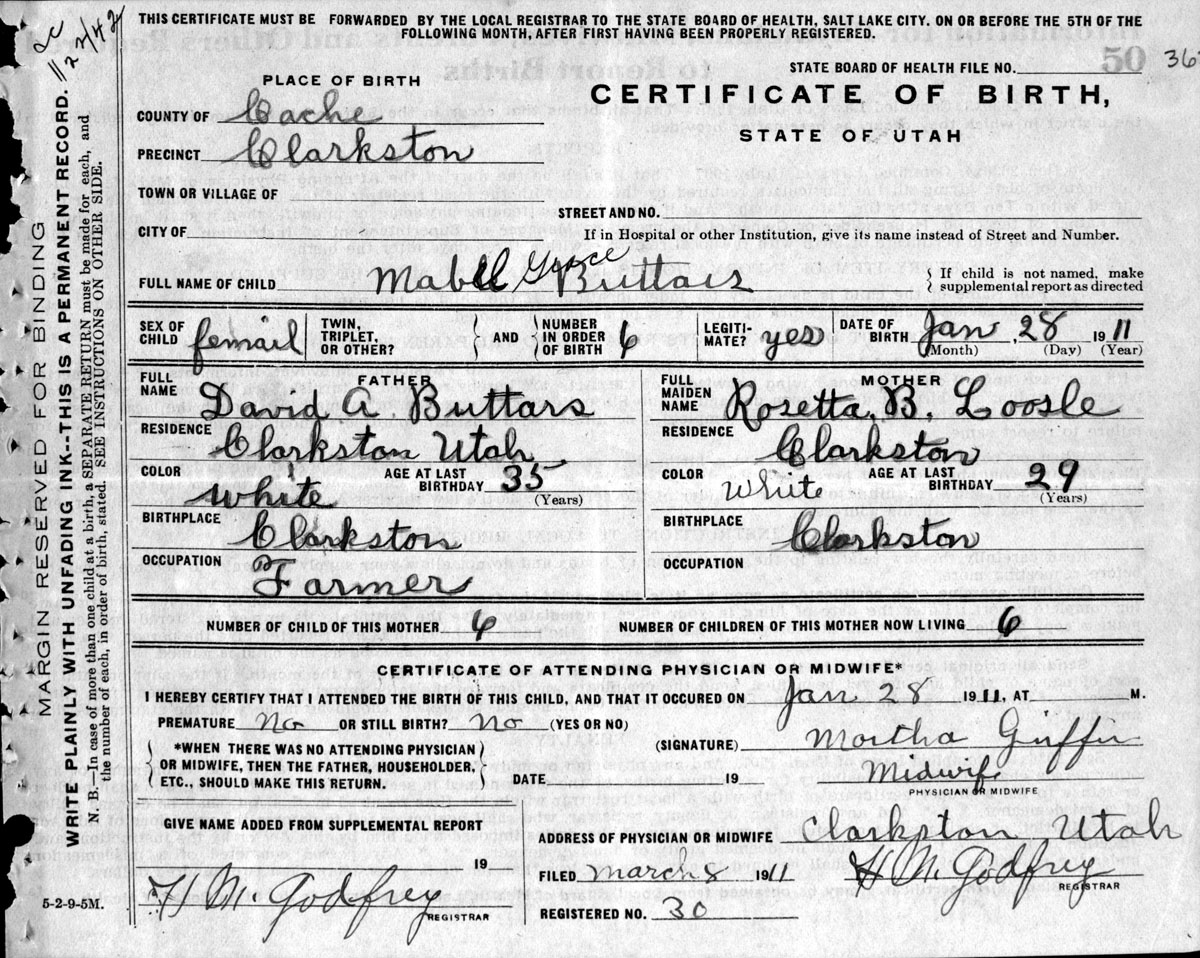 THIS CERTIFICATE MUST BE FORWARDED BY THE LOCAL REGISTRAR TO THE STATE BOARD OF HEALTH, SALT LAKE CITY. ON OR BEFORE THE 5TH OF THE
FOLLOWING MONTH, AFTER FIRST HAVING BEEN PROPERLY REGISTERED.
50 36
STATE BOARD OF HEALTH FILE NO.
PLACE OF BIRTH
CERTIFICATE OF BIRTH,
STATE OF UTAH
COUNTY OF Cache
PRECINCT Clarkston
TOWN OR VILLAGE OF
STREET AND NO.
CITY OF
If in Hospital or other Institution, give its name instead of Street and Number.
FULL NAME OF CHILD Mabell Grace Buttars
{ If child is not named, make
supplemental report as directed
SEX OF CHILD femail
TWIN, TRIPLET, OR OTHER? { } AND { NUMBER IN ORDER OF BIRTH 6
LEGITIMATE? yes
DATE OF BIRTH Jan, 28 1911
(Month) (Day) (Year)
FATHER
FULL NAME David A. Buttars
RESIDENCE Clarkston Utah
COLOR white AGE AT LAST BIRTHDAY 35
(Years)
BIRTHPLACE Clarkston
OCCUPATION Farmer
MOTHER
FULL MAIDEN NAME Rosetta, B. Loosle
RESIDENCE Clarkston
COLOR White AGE AT LAST BIRTHDAY 29
(Years)
BIRTHPLACE Clarkston
OCCUPATION
NUMBER OF CHILD OF THIS MOTHER 6 NUMBER OF CHILDREN OF THIS MOTHER NOW LIVING 6
CERTIFICATE OF ATTENDING PHYSICIAN OR MIDWIFE*
I HEREBY CERTIFY THAT I ATTENDED THE BIRTH OF THIS CHILD, AND THAT IT OCCURED ON Jan 28 1911, AT M.
PREMATURE No OR STILL BIRTH? No (YES OR NO)
{ *WHEN THERE WAS NO ATTENDING PHYSICIAN
OR MIDWIFE, THEN THE FATHER, HOUSEHOLDER,
ETC., SHOULD MAKE THIS RETURN. }
(SIGNATURE) Martha Griffin
DATE 19 Midwife
PHYSICIAN OR MIDWIFE
GIVE NAME ADDED FROM SUPPLEMENTAL REPORT
19
H M. Godfrey
REGISTRAR
ADDRESS OF PHYSICIAN OR MIDWIFE Clarkston Utah
FILED March 8 1911 H M. Godfrey
REGISTRAR
REGISTERED NO. 30
5-2-9-5M.
MARGIN RESERVED FOR BINDING
WRITE PLAINLY WITH UNFADING INK--THIS IS A PERMANENT RECORD.
N. B.—In case of more than one child at a birth, a SEPARATE RETURN must be made for each, and
the number of each, in order of birth, stated. SEE INSTRUCTIONS ON OTHER SIDE.